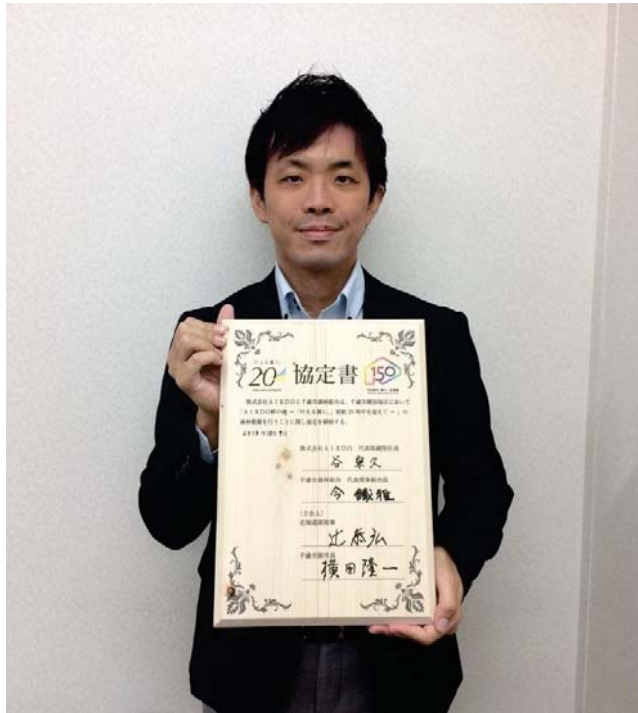 20
協定書
150
株式会社AIRDOと千歳市森林組合は、千歳市
「AIRDO絆の森 ~ 叶える翼に。」就航20周年を迎えて ~ 」の
森林整備を行うことに関し協定を締結する。
株式会社AIRDO 代表取締役社長
谷 寧久
千歳市森林組合 代表理事組合長
今 鐵雄
(立会人)
北海道副知事
辻 泰弘
千歳市副市長
横田隆一